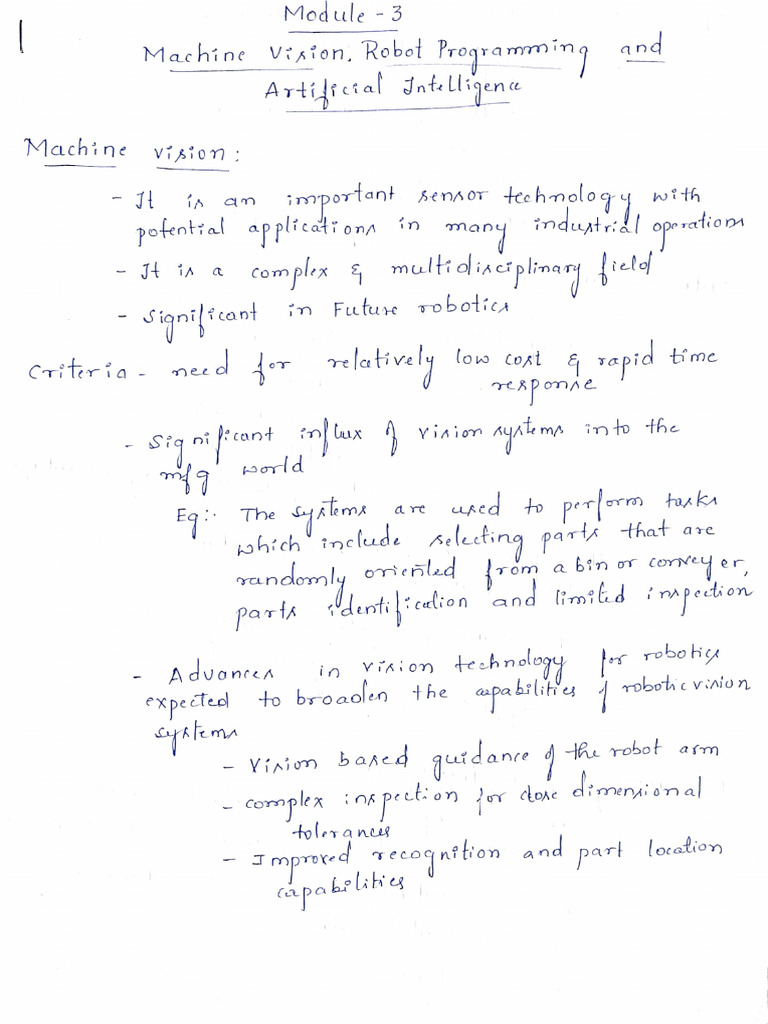 1
Module - 3
Machine Vision, Robot Programming and
Artificial Intelligence
Machine vision :
- It is an important sensor technology with
potential applications in many industrial operations
- It is a complex & multidisciplinary field
- Significant in Future robotics
Criteria - need for relatively low cost & rapid time
response
- Significant influx of vision systems into the
mfg world
Eg:- The systems are used to perform tasks
which include selecting parts that are
randomly oriented from a bin or conveyer,
parts identification and limited inspection
- Advances in vision technology for robotics
expected to broaden the capabilities of robotic vision
systems
- Vision based guidance of the robot arm
- complex inspection for close dimensional
tolerances
- Improved recognition and part location
capabilities